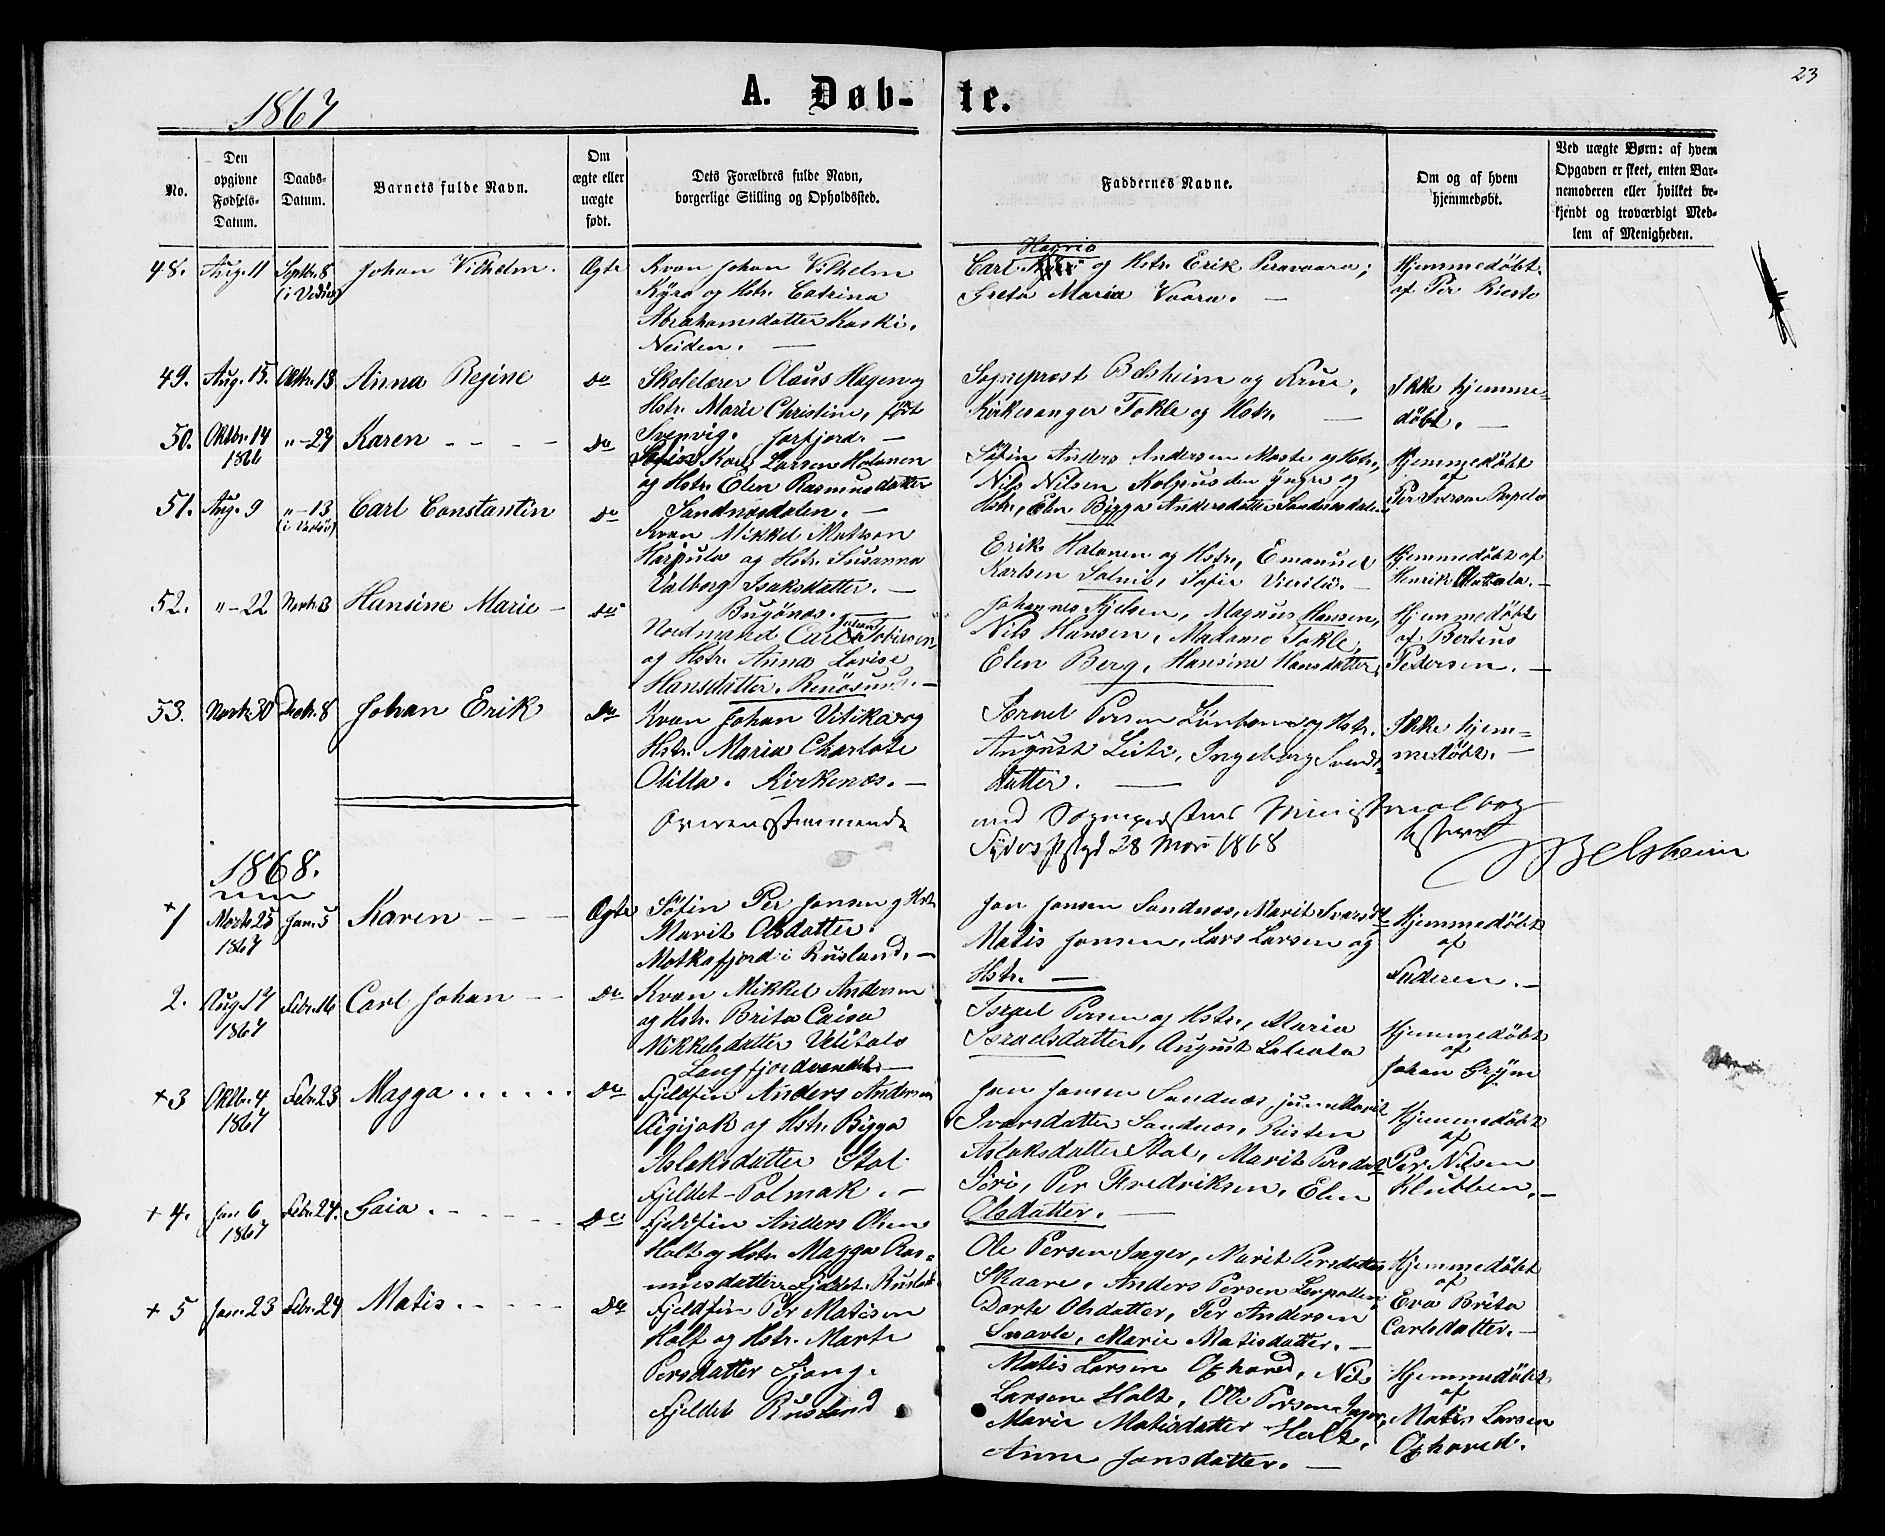 23
1867
A. Døb-te.
No.
Den opgivne Fødsels-Datum.
Daabs-Datum.
Barnets fulde Navn.
Om ægte eller uægte født.
Dets Forældres fulde Navn, borgerlige Stilling og Opholdssted.
Faddernes Navne.
Om og af hvem hjemmedøbt.
Ved uægte Børn: af hvem Opgaven er skeet, enten Barnemoderen eller hvilket bekjendt og troværdigt Medlem af Menigheden.
48. Aug. 11 Septbr. 8 Johan Vilhelm. Ægte
Kvæn Johan Vilhelm
Kyrö og Hstr. Catrina
Abrahamsdatter Koski.
Neiden. —
Carl og Hstr. Erik Peravaara;
Greta Maria Vaara. —
Hjemmedøbt
af Per Riesto
49. Aug. 15. Oktbr. 13 Anna Regine Do
Skolelærer Olaus Hagen og
Hstr. Marie Christine, født
Svenvig. Jarfjord. —
Sogneprest Belsheim og Frue,
Kirkesanger Fokle og Hstr. —
Ikke hjemme=
døbt. —
50. Oktbr. 14 1866 " — 27 Karen - - - - Do
Karl Larsen Halonen
og Hstr. Elen Rasmusdatter
Sandnæsdalen. —
Søfin Anders Andersen Maste og Hstr.,
Nils Nilsen Kalpus den yngre og
Hstr., Elen Bigga Andersdatter Sandnæsdalen
Hjemmedøbt
af
Per Iversen
51. Aug. 9 " — 13 (i Vadsø) Carl Constantin Do
Kvæn Mikkel Matson
Harjula og Hstr. Susanna
Valborg Isaksdatter. —
Bugönæs. —
Erik Halonen og Hstr., Emanuel
Karlsen Salmi, Sofie —
Hjemmedøbt af
Henrik —
52. " — 22 Novbr. 3 Hansine Marie — Do
Nordmand Carl Johan Tobiesen
og Hstr. Anna Lovise
Hansdatter. Renøsund. —
Johannes Nielsen, Magnus Hansen,
Nils Hansen, Madame Fokle,
Elen Berg, Hansine Hansdatter.
Hjemmedøbt
af Bertius
Pedersen. —
53. Novbr. 30 Decbr. 8 Johan Erik Do
Kvæn Johan Vitika og
Hstr. Maria Charlote
Olilla. Kirkenæs. —
Israel Persen og Hstr.
August Leiti, Ingeborg Svends
datter. —
Ikke hjem=
medøbt. —
Overensstemmende
med Sognepræstens Ministerialbog
28 Mai 1868
Belsheim
1868.
+ 1 Novbr. 25 1867 Jan. 5 Karen - - - Ægte
Søfin Per Jonsen og Hstr.
Marit Olsdatter.
Motkafjord i Rusland. —
Jon Jonsen Sandnæs, Marit Ivarsdtr
Matis Jonsen, Lars Larsen og
Hstr. —
Hjemmedøbt
af
Faderen. —
2. Aug. 17 1867 Febr. 16 Carl Johan - - Do
Kvæn Mikkel Andersen
og Hstr. Brita Caisa
Mikkelsdatter Ylitalo
Langfjordvandet. —
Israel Persen og Hstr., Maria
Israelsdatter, August
Hjemmedøbt
af
Johan Grym
+ 3 Oktbr. 4 1867 Febr. 23 Magga . . . . . . Do
Fjeldfin Anders Andersen
Aigijok og Hstr. Bigga
Aslaksdatter Stal.
Fjeldet — Polmak. —
Jon Jonsen Sandnæs jun. Marit
Ivarsdatter Sandnæs, Risten
Aslaksdatter Stal, Marit Persdat
Siri, Per Fredriksen, Elen
Olsdatter. —
Hjemmedøbt
af
Per Nilsen
Klubben. —
+ 4. Jan. 6 1867 Febr. 24. Gaia. - - - - Do
Fjeldfin Anders Olsen
Halt og Hstr. Magga Ras=
musdatter Fjeldet. Rusland
Ole Persen Inger, Marit Persdatter
Skaare, Anders Persen
Dorte Olsdatter, Per Andersen
Snarte, Marie Matisdatter. —
Hjemmedøbt
af
Eva Brita
Carlsdatter. —
+ 5 Jan. 23 Febr. 24 Matis. - - - - Do
Fjeldfin Per Matisen
Halt og Hstr. Marte
Persdatter Fjong.
Fjeldet Rusland
Matis Larsen, Nils
Larsen Halt, Ole Persen Inger,
Marie Matisdatter Halt,
Anne Jonsdatter. —
Hjemmedøbt
af
Matis Larsen